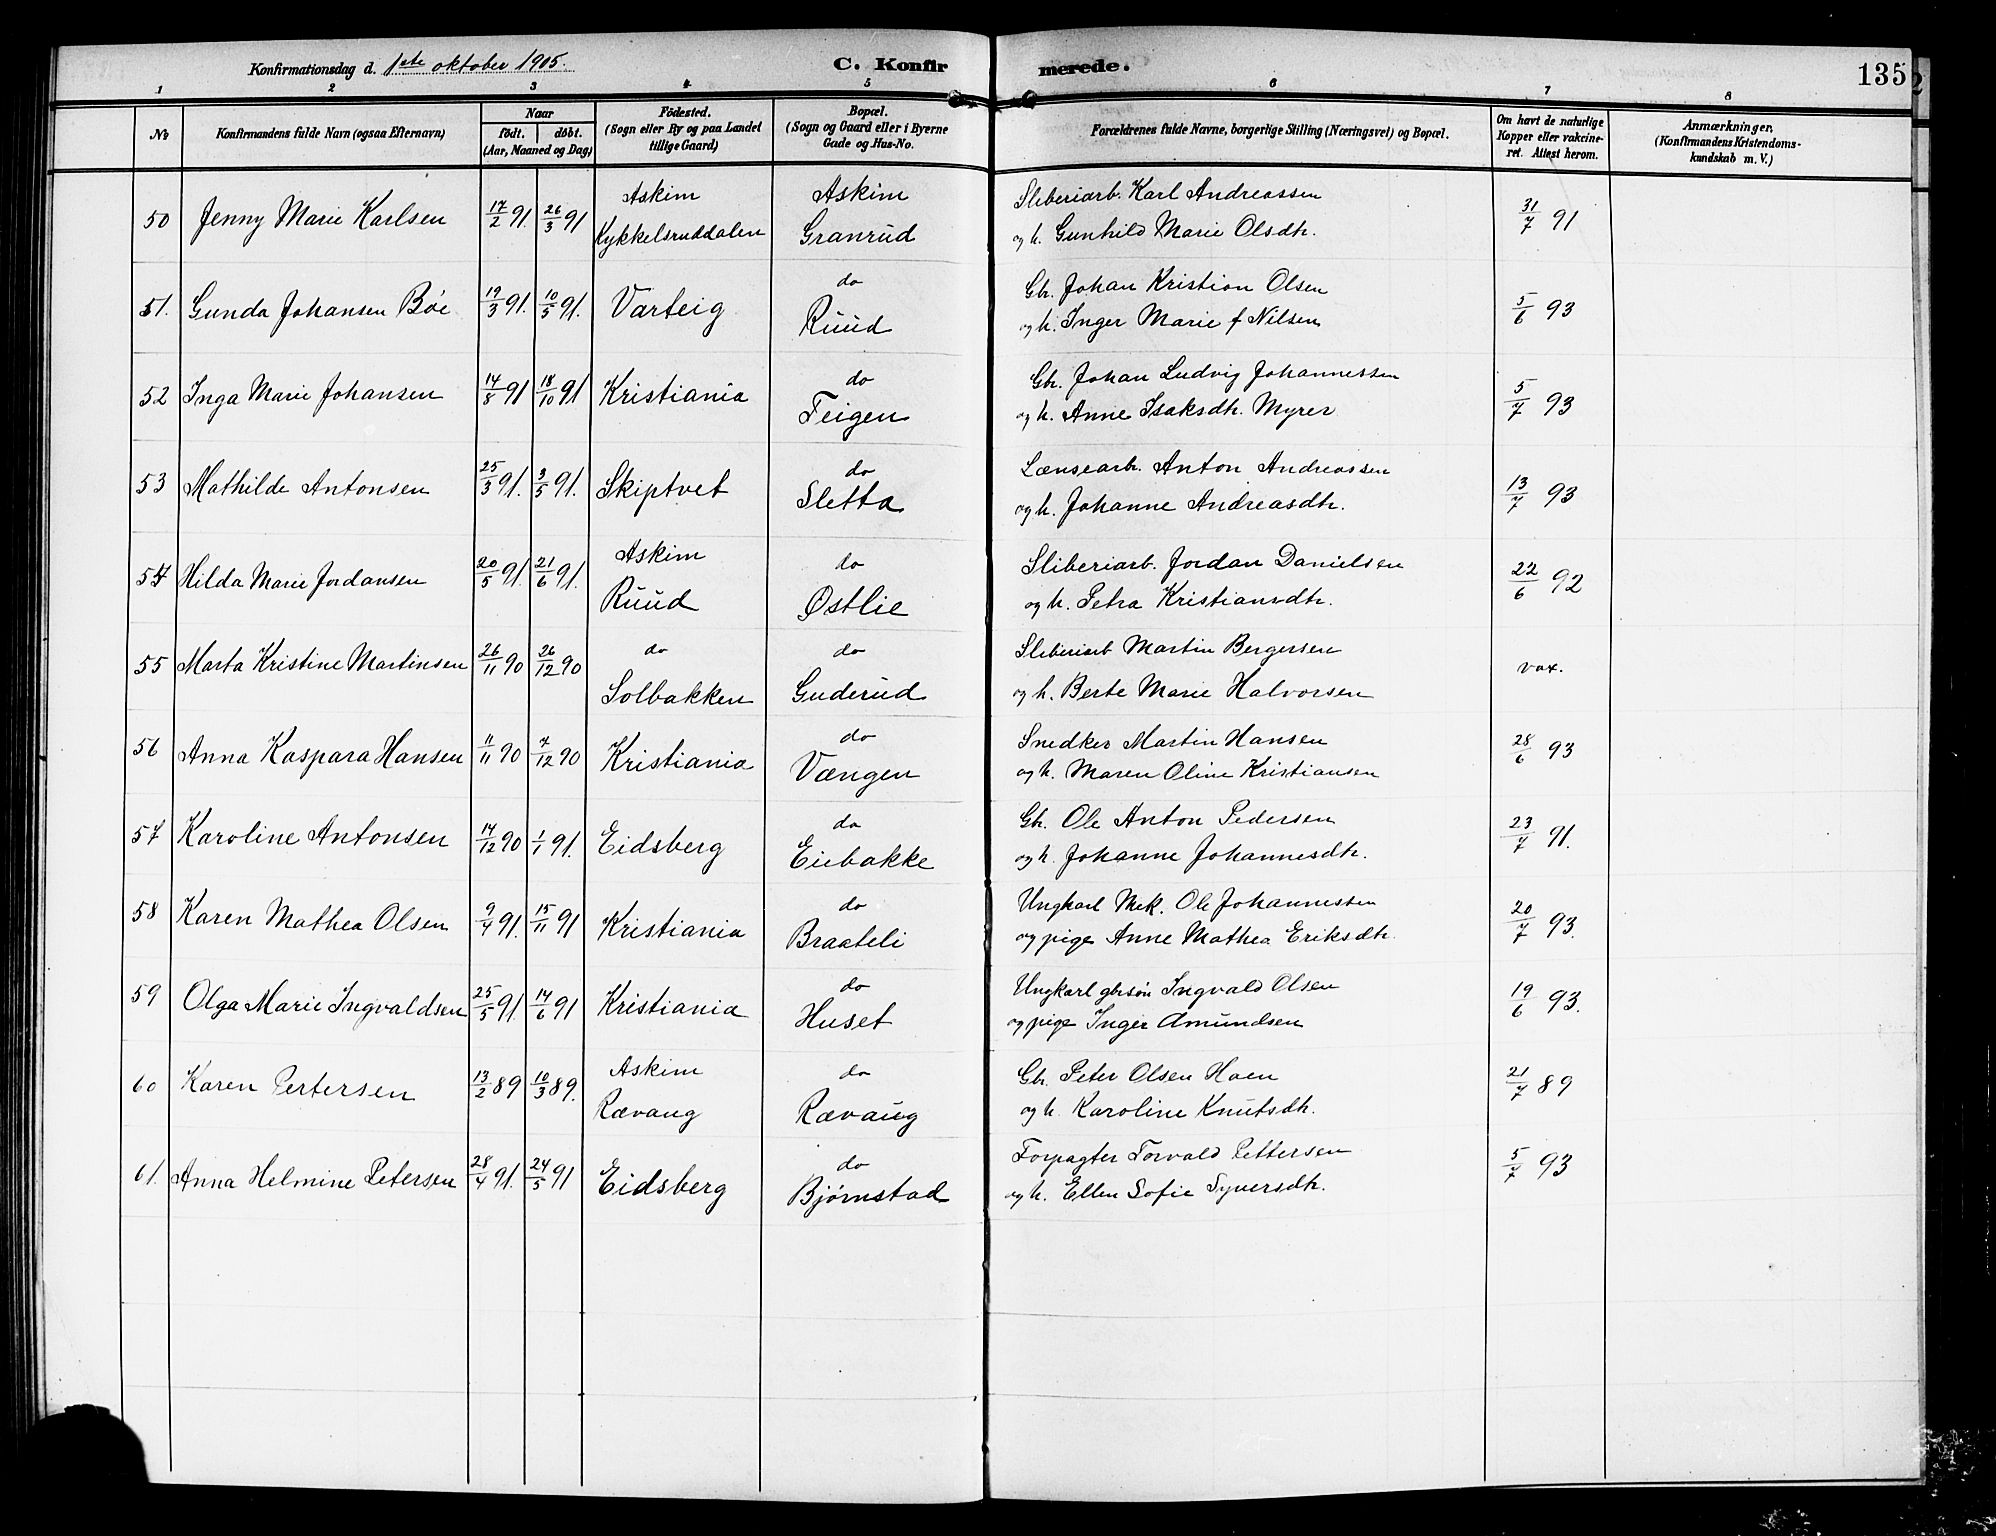 Konfirmationsdag d. 1ste oktober 1905.
C. Konfirmerede.
135
1 2 3 4 5 6 7 8
No
Konfirmandens fulde Navn (ogsaa Efternavn)
Naar
födt. döbt.
(Aar, Maaned og Dag)
Födested.
(Sogn eller By og paa Landet
tillige Gaard)
Bopæl.
(Sogn og Gaard eller i Byerne
Gade og Hus-No.
Forældrenes fulde Navne, borgerlige Stilling (Næringsvei) og Bopæl.
Om havt de naturlige
Kopper eller vakcine-
ret. Attest herom.
Anmærkninger.
(Konfirmandens Kristendoms-
kundskab m. V.)
50 Jenny Marie Karlsen 17/2 91. 26/3 91 Askim Kykkelsruddalen Askim Granrud
Sliberiarb. Karl Andreassen
og h. Gunhild Marie Olsdtr. 31/7 91
51. Gunda Johansen Böe 19/3 91. 10/5 91. Varteig do Ruud
Gbr. Johan Kristian Olsen
og h. Inger Marie f Nilsen 5/6 93
52 Inga Marie Johansen 14/8 91 18/10 91 Kristiania do Feigen
Gbr. Johan Ludvig Johannessen
og h. Anne Isaksdtr. Myrer 5/7 93
53 Mathilde Antonsen 25/3 91. 3/5 91. Skiptvet do Sletta
Lænsearb. Anton Andreassen
og h. Johanne Andreasdtr. 13/7 93
54 Hilda Marie Jordansen 20/5 91. 21/6 91. Askim Ruud do Østlie
Sliberiarb. Jordan Danielsen
og h. Petra Kristiansdtr. 22/6 92
55 Marta Kristine Martinsen 26/11 90 26/12 90 do Solbakken do Guderud
Sliberiarb Martin Bergersen
og h. Berte Marie Halvorsen vax.
56 Anna Kaspara Hansen 11/11 90 7/12 90 Kristiania do Vængen
Snedker Martin Hansen
og h. Maren Oline Kristiansen 28/6 93
57 Karoline Antonsen 14/12 90 1/1 91. Eidsberg do Eiebakke
Gbr. Ole Anton Pedersen
og h. Johanne Johannesdtr. 23/7 91.
58 Karen Mathea Olsen 9/4 91. 15/11 91 Kristiania do Braateli
Ungkarl Mek. Ole Johannessen
og pige Anne Mathea Eriksdtr. 20/7 93.
59 Olga Marie Ingvaldsen 25/5 91 14/6 91 Kristiania do Huset
Ungkarl gbrsøn Ingvald Olsen
og pige Inger Amundsen 19/6 93.
60 Karen Pertersen 13/2 89 10/3 89. Askim Rævaug do Rævaug
Gbr. Peter Olsen Haen
og h. Karoline Knutsdtr. 21/7 89
61. Anna Helmine Petersen 28/4 91. 24/5 91 Eidsberg do Bjørnstad
Forpagter Torvald Pettersen
og h. Ellen Sofie Syversdtr. 5/7 93